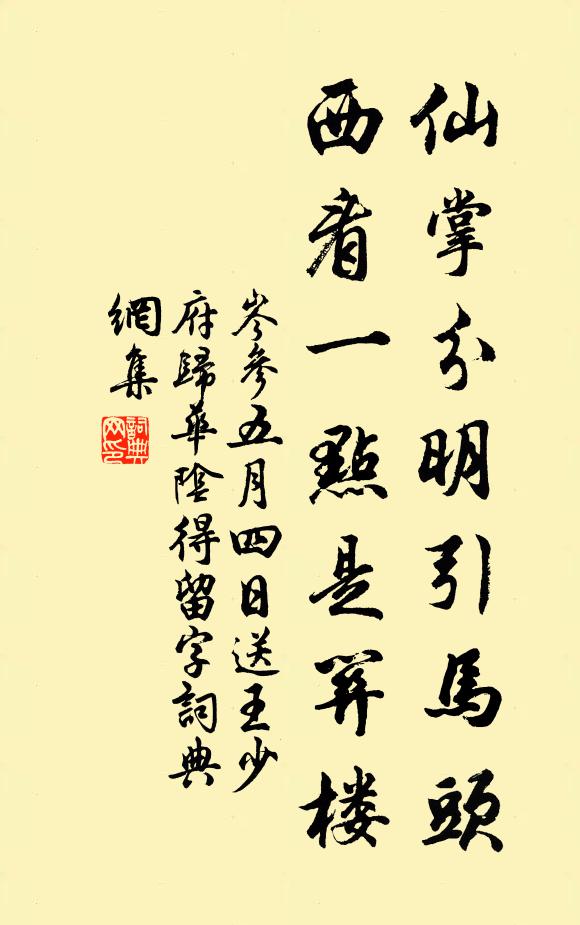 仙掌分明引馬頭
西看一點是關楼
岑參五月四日送王少
府歸華陰得留字詞典
網集
詞典
网印